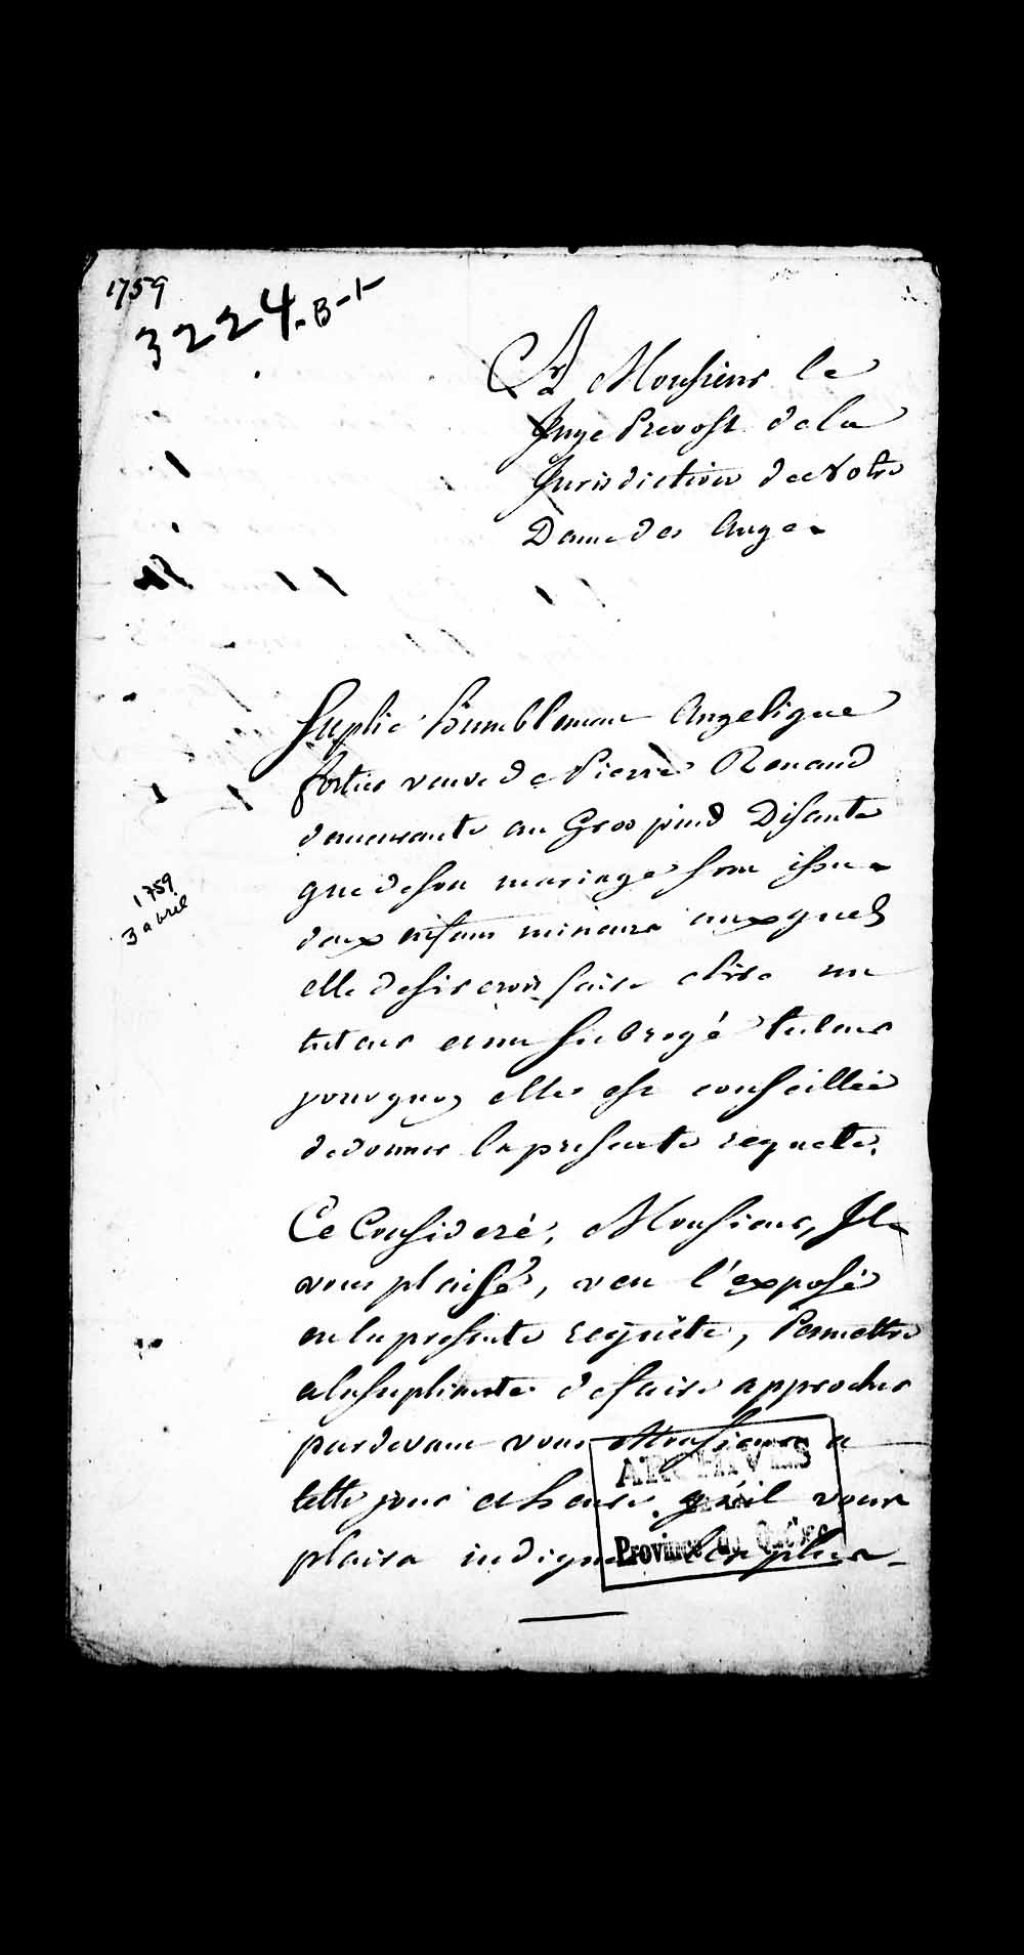 1759
3224.-B-1-
A Monsieur le
Juge Prevost de la
Jurisdiction de Notre
Dame des Anges
Suplie humblement Angelique
fortier veuve de Pierre Renaud
demeurante au Gros pind Disante
que de son mariage sont issus
deux enfans mineurs auxquels
1759
3 abril
elle desireroit faire elire un
tuteur et un subrogé tuteur
pourquoy elle est conseillée
de donner la presente requete.
Ce Consideré, Monsieur, Il
vous plaise, veu l'exposé
en la presente requête, Permettre
a la supliante de faire approcher
pardevant vous Monsieur a
telle jour et heure qu'il vous
plaira indiquer les plus-
ARCHIVES
Province de Québec